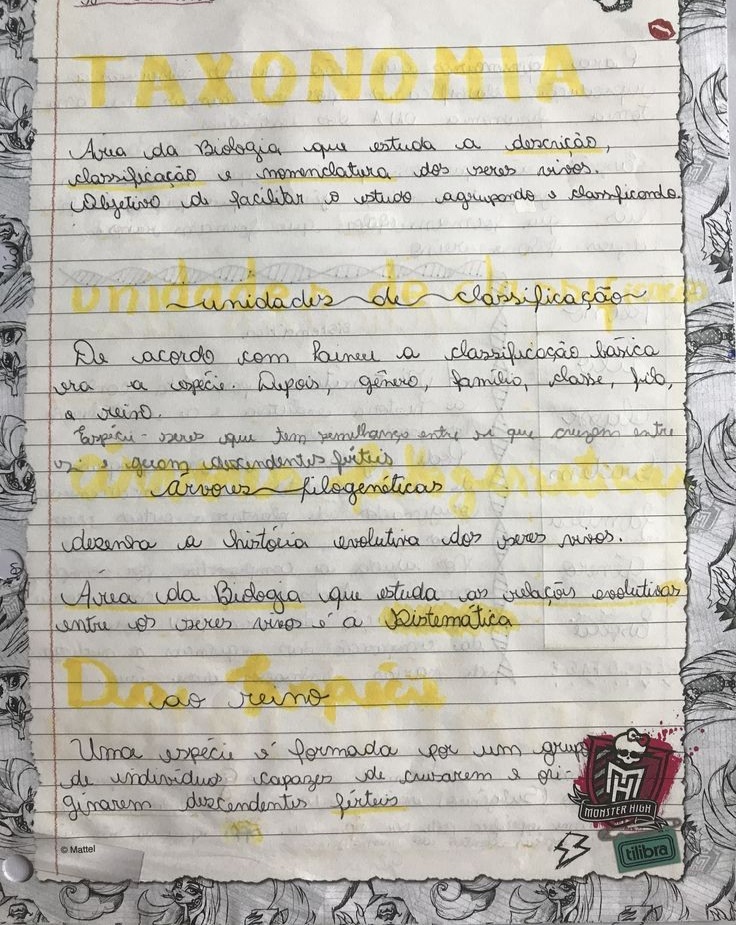 TAXONOMIA
Área da Biologia que estuda a descrição,
classificação e nomenclatura dos seres vivos.
Objetivo de facilitar o estudo agrupando e classificando.
unidades de classificação
De acordo com Lineu a classificação básica
era a espécie. Depois, gênero, família, classe, filo,
e reino.
Espécie - seres que tem semelhança entre si que cruzam entre
si e geram descendentes férteis
árvores filogenéticas
desenha a história evolutiva dos seres vivos.
Área da Biologia que estuda as relações evolutivas
entre os seres vivos é a Sistemática
Da Espécie
ao reino
Uma espécie é formada por um grupo
de indivíduos capazes de cruzarem e ori-
ginarem descendentes férteis
MONSTER HIGH
© Mattel
tilibra